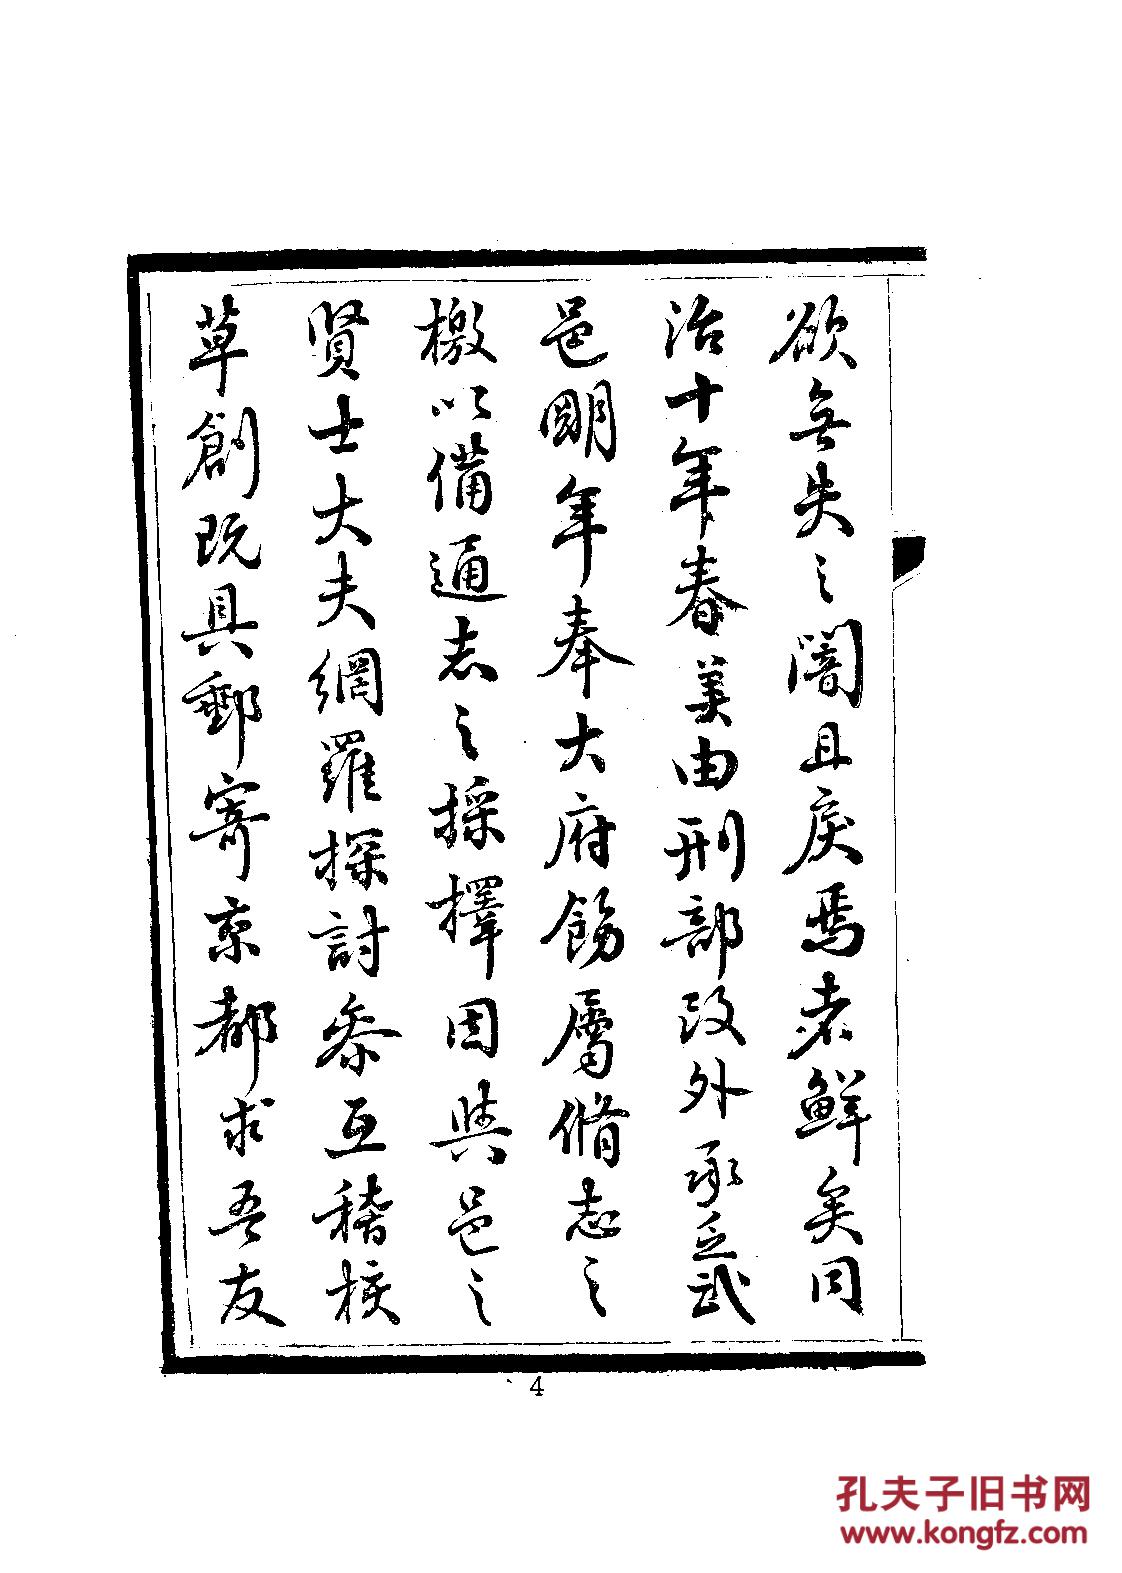 欲無失之闇且戾焉者鮮矣同
治十年春美由刑部改外承乏武
邑明年奉大府飭屬脩志之
檄以備通志之採擇因與邑之
賢士大夫網羅探討參互稽核
草創既具郵寄京都求吾友
4
孔夫子旧书网
www.kongfz.com